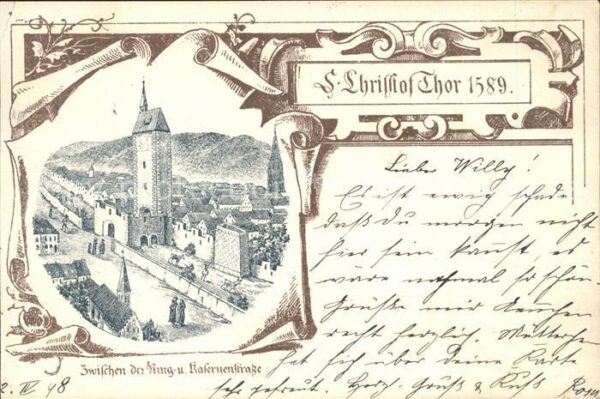 S. Christof Thor 1589.
Lieber Willy!
Es ist ewig schade
daß Du morgen nicht
hier sein kannst, es
wäre nochmal so schön.
Grüße mir
recht herzlich. Mutterchen
hat sich über deine Karte
sehr gefreut. Herz. Gruß & Kuß Rosa
Zwischen der Ring- u. Kasernenstraße
2. IV 98